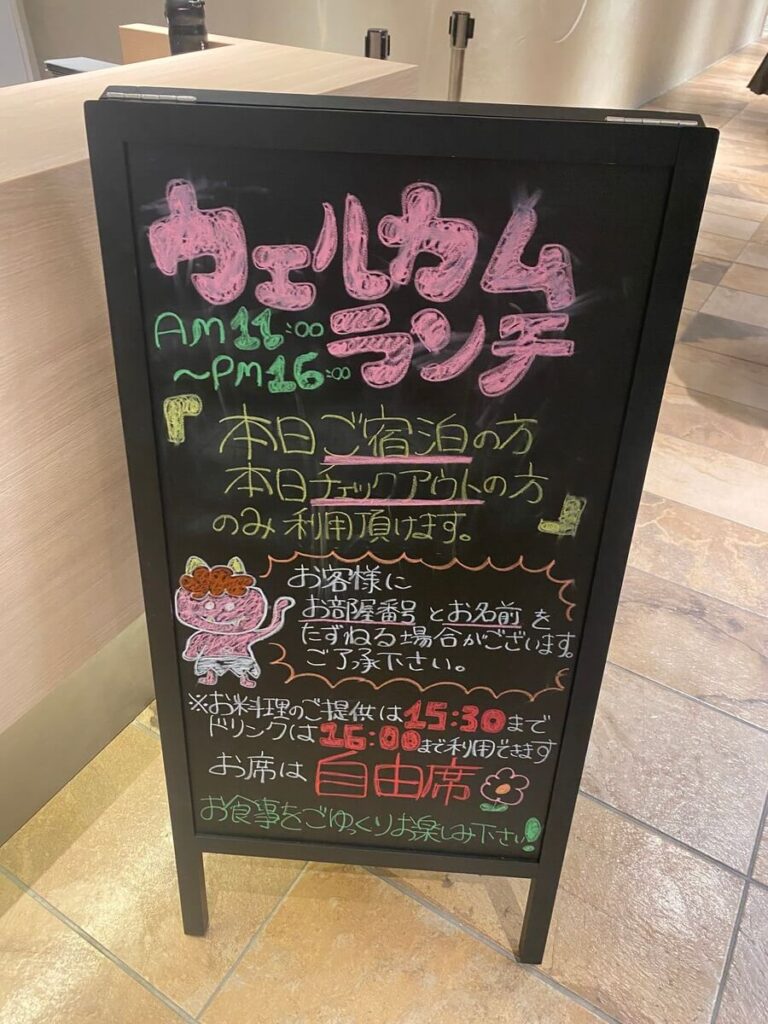 ウェルカム
ランチ
AM11:00
～PM16:00
『本日ご宿泊の方
本日チェックアウトの方
のみ利用頂けます。』
お客様に
お部屋番号とお名前を
たずねる場合がございます。
ご了承下さい。
※お料理のご提供は15:30まで
ドリンクは16:00まで利用できます
お席は自由席
お食事をごゆっくりお楽しみ下さい!